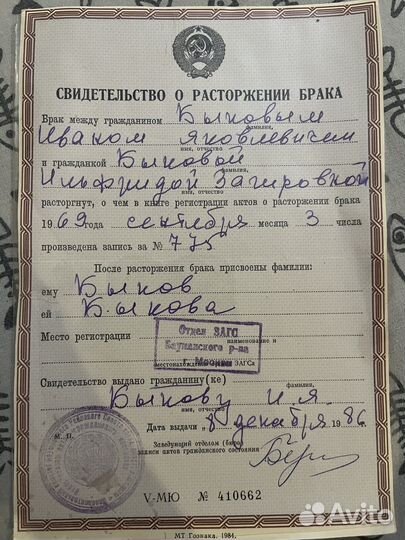 СВИДЕТЕЛЬСТВО О РАСТОРЖЕНИИ БРАКА
Брак между гражданином Быковым
фамилия,
Иваном Яковлевичем
имя, отчество
и гражданкой Быковой
фамилия,
Ильфридой Загировной
имя, отчество
расторгнут, о чем в книге регистрации актов о расторжении брака
1969 года сентября месяца 3 числа
произведена запись за № 775
После расторжения брака присвоены фамилии:
ему Быков
ей Быкова
Место регистрации
наименование и
Отдел ЗАГС
Бауманского р-на
г. Москвы
местонахождение ЗАГСа
Свидетельство выдано гражданину(ке)
фамилия,
Быкову И.Я.
имя, отчество
Дата выдачи „ декабря 1986 г.
М. П.
Заведующий отделом (бюро)
записи актов гражданского состояния
V-МЮ № 410662
МТ Гознака. 1984.
Avito